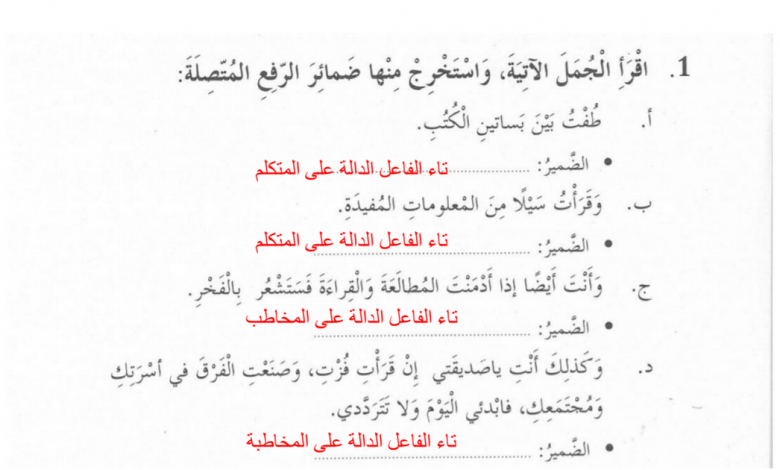 1. اقْرَأِ الْجُمَلَ الآتِيَةَ، وَاسْتَخْرِجْ مِنْها ضَمائِرَ الرَّفعِ المُتّصِلَةَ:
أ. طُفْتُ بَيْنَ بَساتينِ الْكُتُبِ.
• الضَّميرُ: تاء الفاعل الدالة على المتكلم
ب. وَقَرَأْتُ سَيْلًا مِنَ المْعلوماتِ المُفيدَةِ.
• الضَّميرُ: تاء الفاعل الدالة على المتكلم
ج. وَأَنْتَ أَيْضًا إذا أَدْمَنْتَ المُطالَعَةَ وَالْقِراءَةَ فَسَتَشْعُر بِالْفَخْرِ.
• الضَّميرُ: تاء الفاعل الدالة على المخاطب
د. وَكَذلِكَ أَنْتِ ياصَديقَتي إِنْ قَرَأْتِ فُزْتِ، وَصَنَعْتِ الْفَرْقَ في أسْرَتِكِ
وَمُجْتَمَعِكِ، فابْدئي الْيَوْمَ وَلا تَتَرَدَّدي.
• الضَّميرُ: تاء الفاعل الدالة على المخاطبة